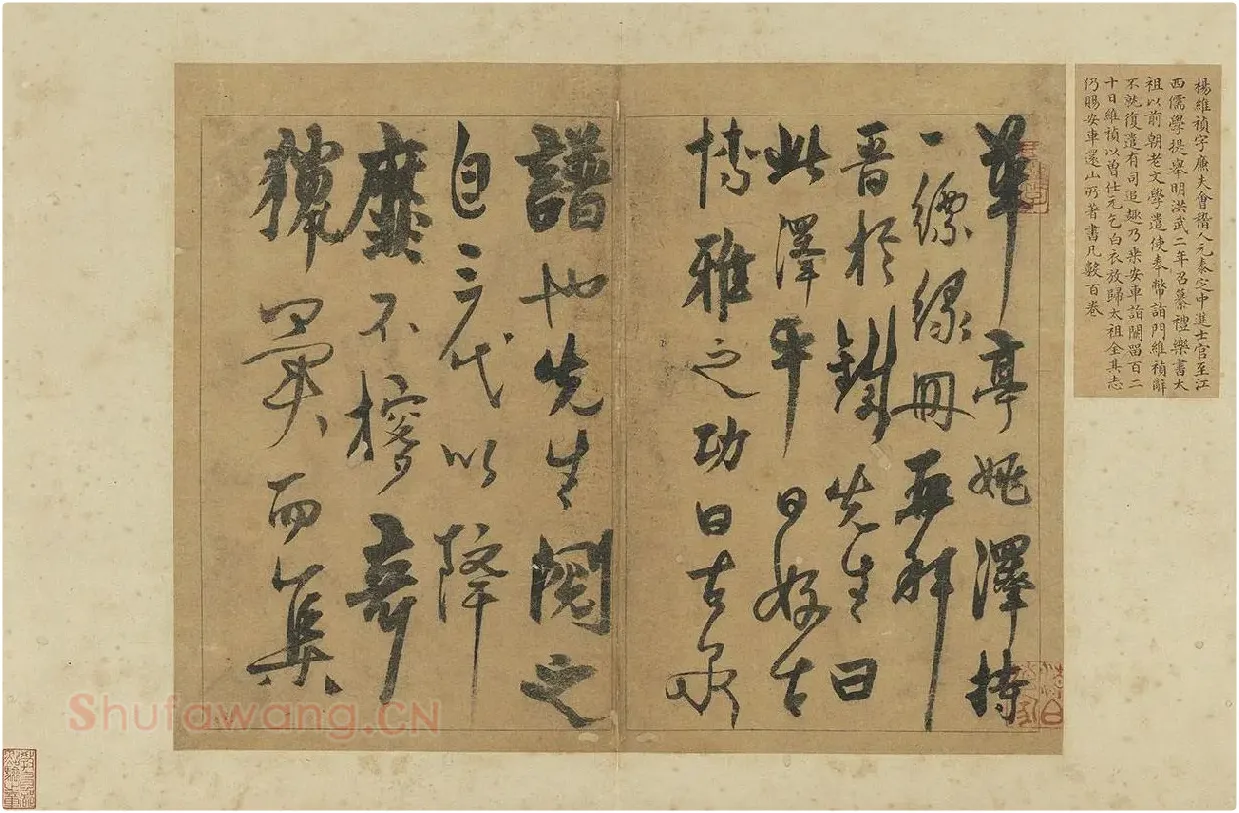 楊維禎字廉夫會稽人元泰定中進士官至江
西儒學提舉明洪武二年召纂禮樂書太
祖以前朝老文學遣使奉幣詣門維禎辭
不就復遣有司追趣乃乘安車詣闕留百二
十日維禎以曾仕元乞白衣放歸太祖全其志
仍賜安車還山所著書凡數百卷
華亭姚澤持
一縹緣冊再拜
晋於鐵先生曰
此澤平日好古
博雅之功曰古泉
譜也先生閱之
自三代以降
靡不搜奇
獵異而集
Shufawang.CN